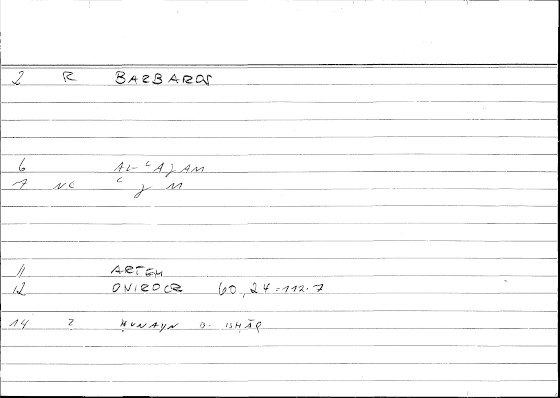 2 R BARBAROS
6 AL-ʿAǧAM
7 NC ʿ ǧ M
11 ARTEM
12 ONIROCR 60,24=112.7
14 2 ḤUNAYN B. ISḤĀQ